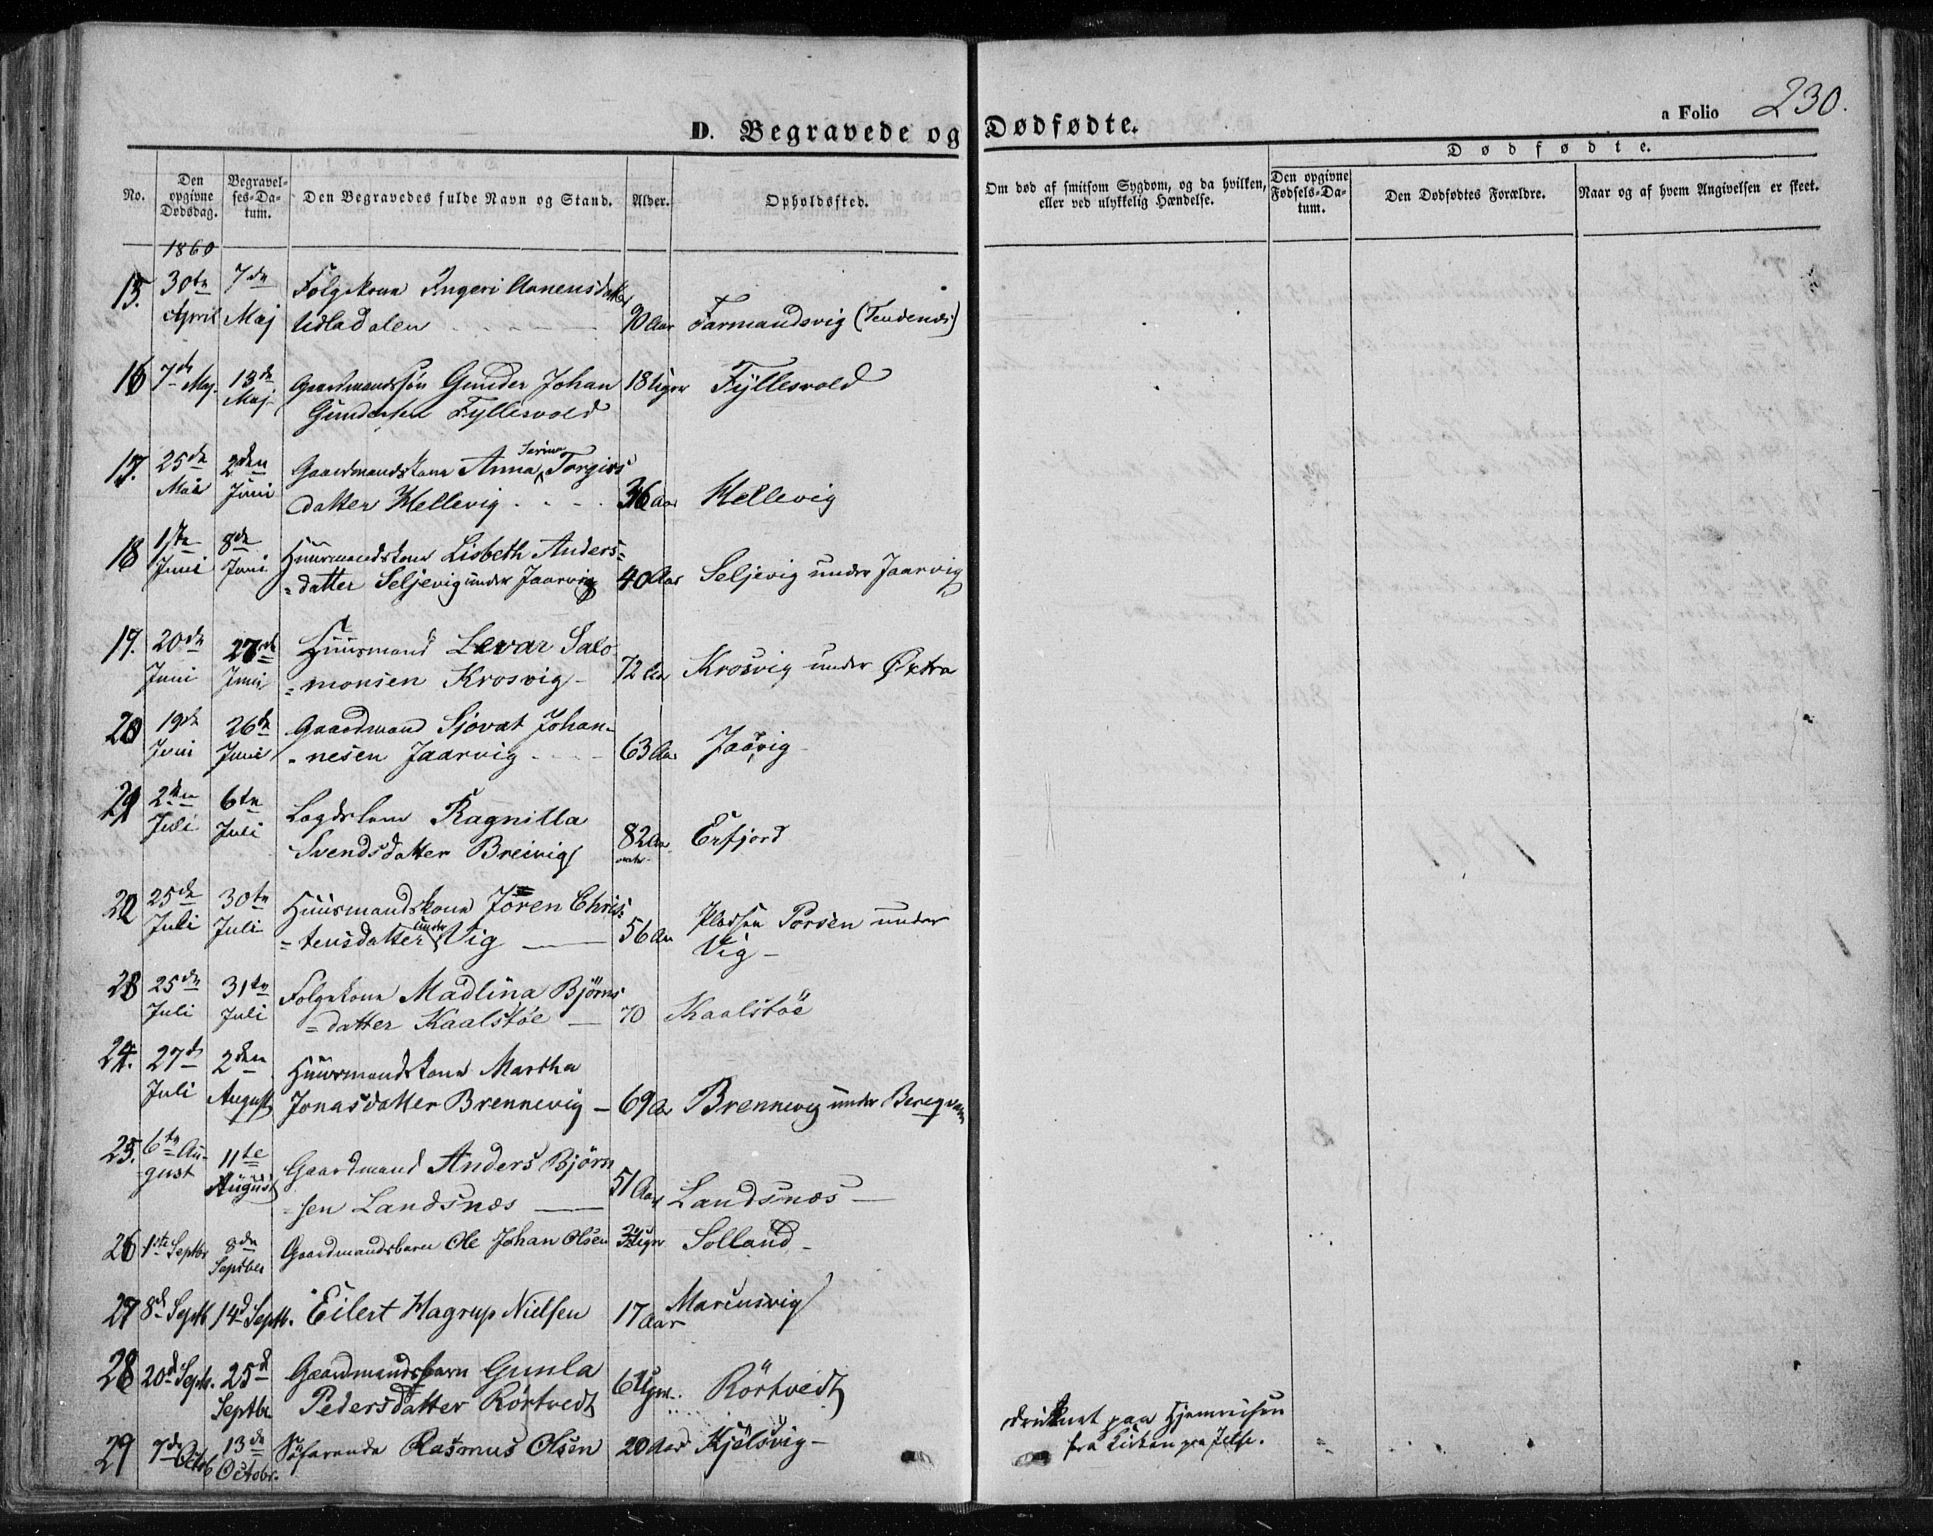 D. Begravede og Dødfødte.
a Folio 230.
No.
Den opgivne Dødsdag.
Begravelses-Datum.
Den Begravedes fulde Navn og Stand.
Alder.
Opholdssted.
Om død af smitsom Sygdom, og da hvilken, eller ved ulykkelig Hændelse.
Dødfødte.
Den opgivne Fødsels-Datum.
Den Dødfødtes Forældre.
Naar og af hvem Angivelsen er skeet.
1860
15. 30te 7de Folgekone Ingeri Aanensdatter
April Maj Udladalen 90 Aar Farmandsvig (Tendenæs)
16 7de Maj. 13de Gaardmandssøn Gunder Johan 18 Uger Fyllesvold
Maj Gundersen Fyllesvold
17. 25de 2den Gaardmandskone Anna Serina Torgirs
Mai Juni datter Hellevig 36 Aar Hellevig
18 1ste 8de Huusmandskone Lisbeth Anders=
Juni Juni =datter Seljevig under Jaarvig 40 Aar Seljevig under Jaarvig
19. 20de 27de Huusmand Levar Salo
Juni Juni =monsen Krosvig - 72 Aar Krosvig under Øxtra
20 19de 26te Gaardmand Sjovat Johan-
Juni Juni - nesen Jaarvig 63 Aar Jaavig -
21 2den 6te Lægdslem Ragnilla
Juli Juli Svendsdatter Breivig 82 Aar Erfjord
22 25de 30te Huusmandskone Jören Chris=
Juli Juli =tensdatter under Vig 56 Aar Pladsen Porsen under
Vig -
23 25de 31te Folgekone Madlina Bjørns
Juli Juli =datter Kaalstöe 70 Kaalstöe
24. 27de 2den Huusmandskone Martha
Juli August Jonasdatter Brennevig - 69 Aar Brennevig under Beregvam
25. 6te Au- 11te Gaardmand Anders Bjørn
gust August =sen Landsnæs 51 Aar Landsnæs
26 1ste Septbr 8de Gaardmandsbarn Ole Johan Olsen Uger Solland -
Septber
27 8de Septb 14de Septb. Eilert Hagrup Nielsen 17 Aar Marensvig
28 20de Septb. 25de Gaardmandsbarn Gunla
Septbr. Pedersdatter Rörtvedt 6 Uger. Rörtvedt
29 7de Octob 13de Octobr. Søfarende Rasmus Olsen 20 Aar Kjølsvig - druknet paa Hjemreisen
fra Kirken paa Jelse.